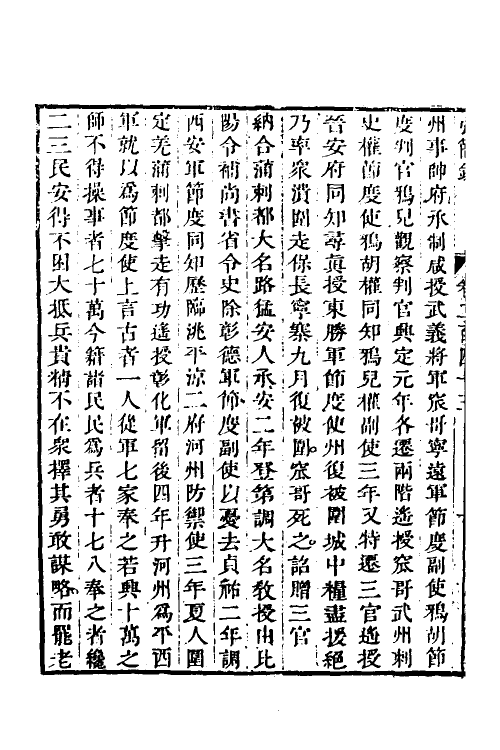 弘簡錄 卷二百四十三
州事帥府承制咸授武義將軍窊哥寧遠軍節度副使鴉胡節
度判官鴉兒觀察判官興定元年各遷兩階遙授窊哥武州刺
史權節度使鴉胡權同知鴉兒權副使三年又特遷三官遙授
晉安府同知尋眞授東勝軍節度使州復被圍城中糧盡援絕
乃率衆潰圍走保長寧寨九月復被圍窊哥死之詔贈三官
納合蒲剌都大名路猛安人承安二年登第調大名敎授由比
陽令補尚書省令史除彰德軍節度副使以憂去貞祐二年調
西安軍節度同知歷臨洮平涼二府河州防禦使三年夏人圍
定羌蒲剌都擊走有功遙授彰化軍留後四年升河州爲平西
軍就以爲節度使上言古者一人從軍七家奉之若興十萬之
師不得操事者七十萬今籍諸民民爲兵者十七八奉之者纔
二三民安得不困大抵兵貴精不在衆擇其勇敢謀略而罷老